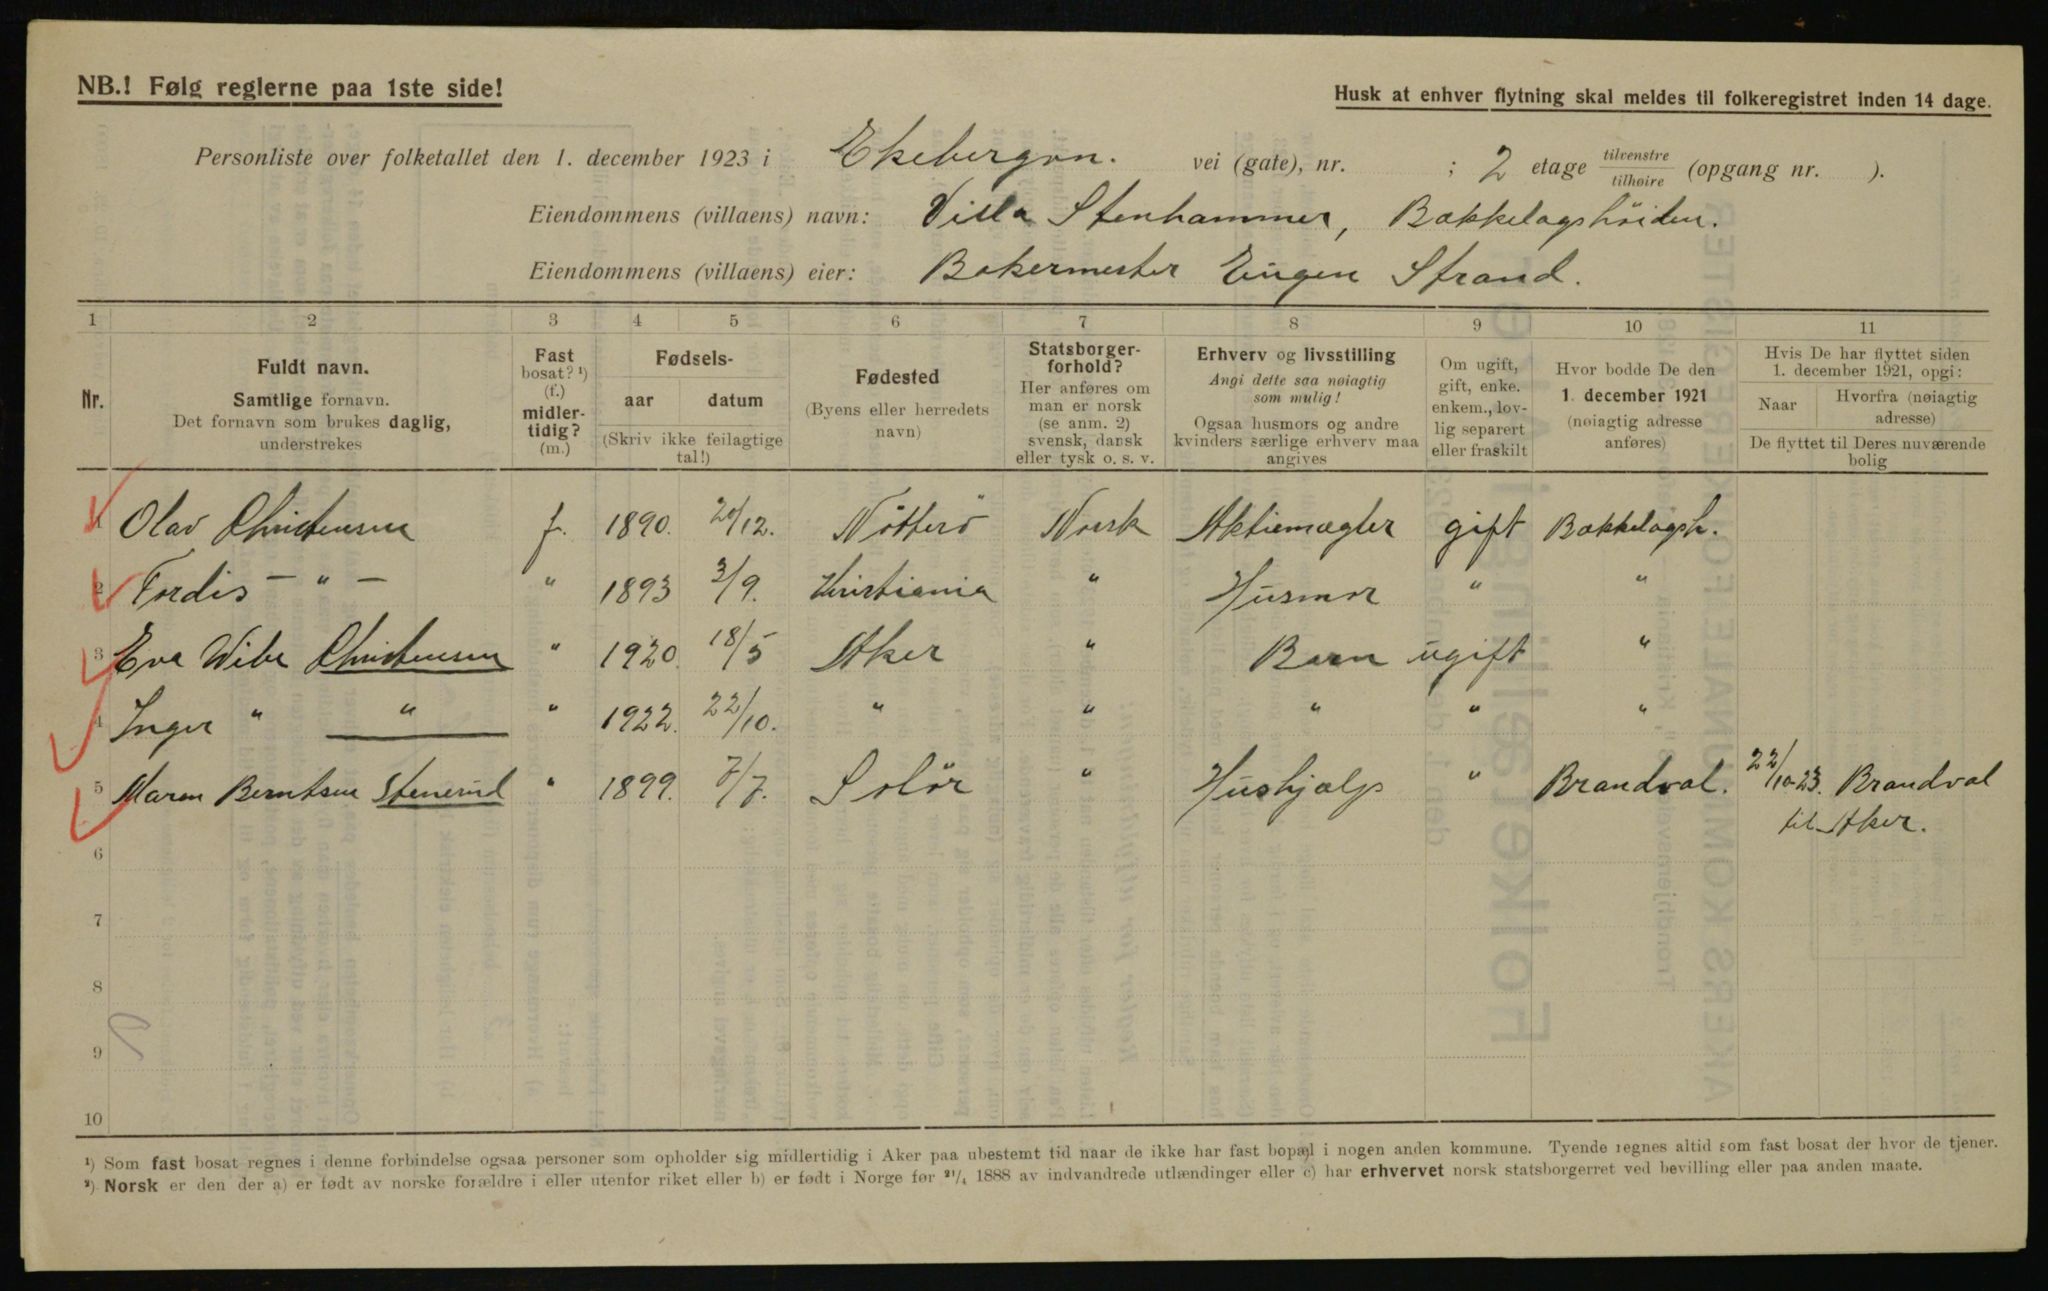 NB.! Følg reglerne paa 1ste side!
Husk at enhver flytning skal meldes til folkeregistret inden 14 dage.
Personliste over folketallet den 1. december 1923 i Ekebergvn. vei (gate), nr. ; 2 etage tilvenstre / tilhøire (opgang nr. ).
Eiendommens (villaens) navn: Villa Stenhammer, Bækkelagshöiden.
Eiendommens (villaens) eier: Bakermester Eugen Strand.
1 2 3 4 5 6 7 8 9 10 11
Nr.
Fuldt navn.
Samtlige fornavn.
Det fornavn som brukes daglig,
understrekes
Fast
bosat? ¹)
(f.)
midler-
tidig?
(m.)
Fødsels-
aar datum
(Skriv ikke feilagtige
tal!)
Fødested
(Byens eller herredets
navn)
Statsborger-
forhold?
Her anføres om
man er norsk
(se anm. 2)
svensk, dansk
eller tysk o. s. v.
Erhverv og livsstilling
Angi dette saa nøiagtig
som mulig!
Ogsaa husmors og andre
kvinders særlige erhverv maa
angives
Om ugift,
gift, enke.
enkem., lov-
lig separert
eller fraskilt
Hvor bodde De den
1. december 1921
(nøiagtig adresse
anføres)
Hvis De har flyttet siden
1. december 1921, opgi:
Naar Hvorfra (nøiagtig
adresse)
De flyttet til Deres nuværende
bolig
1 Olav Christensen f. 1890. 20/12. Nötterö Norsk Aktiemægler gift Bækkelagsh.
2 Tordis — " — " 1893 3/9. Kristiania " Husmor " "
3 Eva Wibe Christensen " 1920. 18/5 Aker " Barn ugift "
4 Inger " " " 1922. 22/10. " " " " "
5 Maren Berntsen Stenerud " 1899. 7/7. Solör " Hushjælp " Brandval. 22/10-23. Brandval
til Aker.
6
7
8
9
10
¹) Som fast bosat regnes i denne forbindelse ogsaa personer som opholder sig midlertidig i Aker paa ubestemt tid naar de ikke har fast bopæl i nogen anden kommune. Tyende regnes altid som fast bosat der hvor de tjener.
²) Norsk er den der a) er født av norske forældre i eller utenfor riket eller b) er født i Norge før ²¹/₄ 1888 av indvandrede utlændinger eller c) har erhvervet norsk statsborgerret ved bevilling eller paa anden maate.